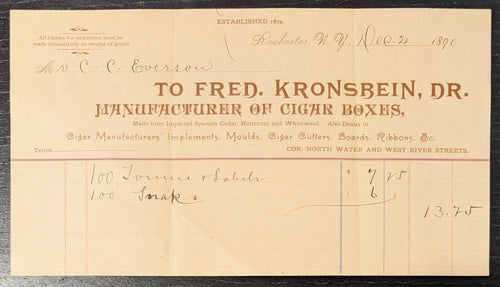 ESTABLISHED 1874.
All Claims for deduction must be
made immediately on receipt of goods.
Rochester, N. Y., Dec. 2 1890
Mr C. C. Everson
TO FRED. KRONSBEIN, DR.
MANUFACTURER OF CIGAR BOXES,
Made from Imported Spanish Cedar, Butternut and Whitewood. Also Dealer in
Cigar Manufacturers' Implements, Moulds, Cigar Cutters, Boards, Ribbons, &c.
Terms
COR. NORTH WATER AND WEST RIVER STREETS.
100 & Labels 7.75
100 6
13.75